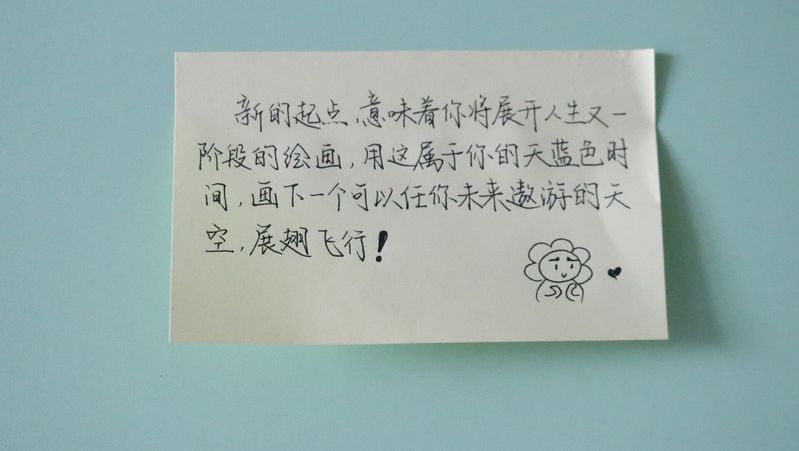 新的起点,意味着你将展开人生又一
阶段的绘画,用这属于你的天蓝色时
间,画下一个可以任你未来遨游的天
空,展翅飞行!